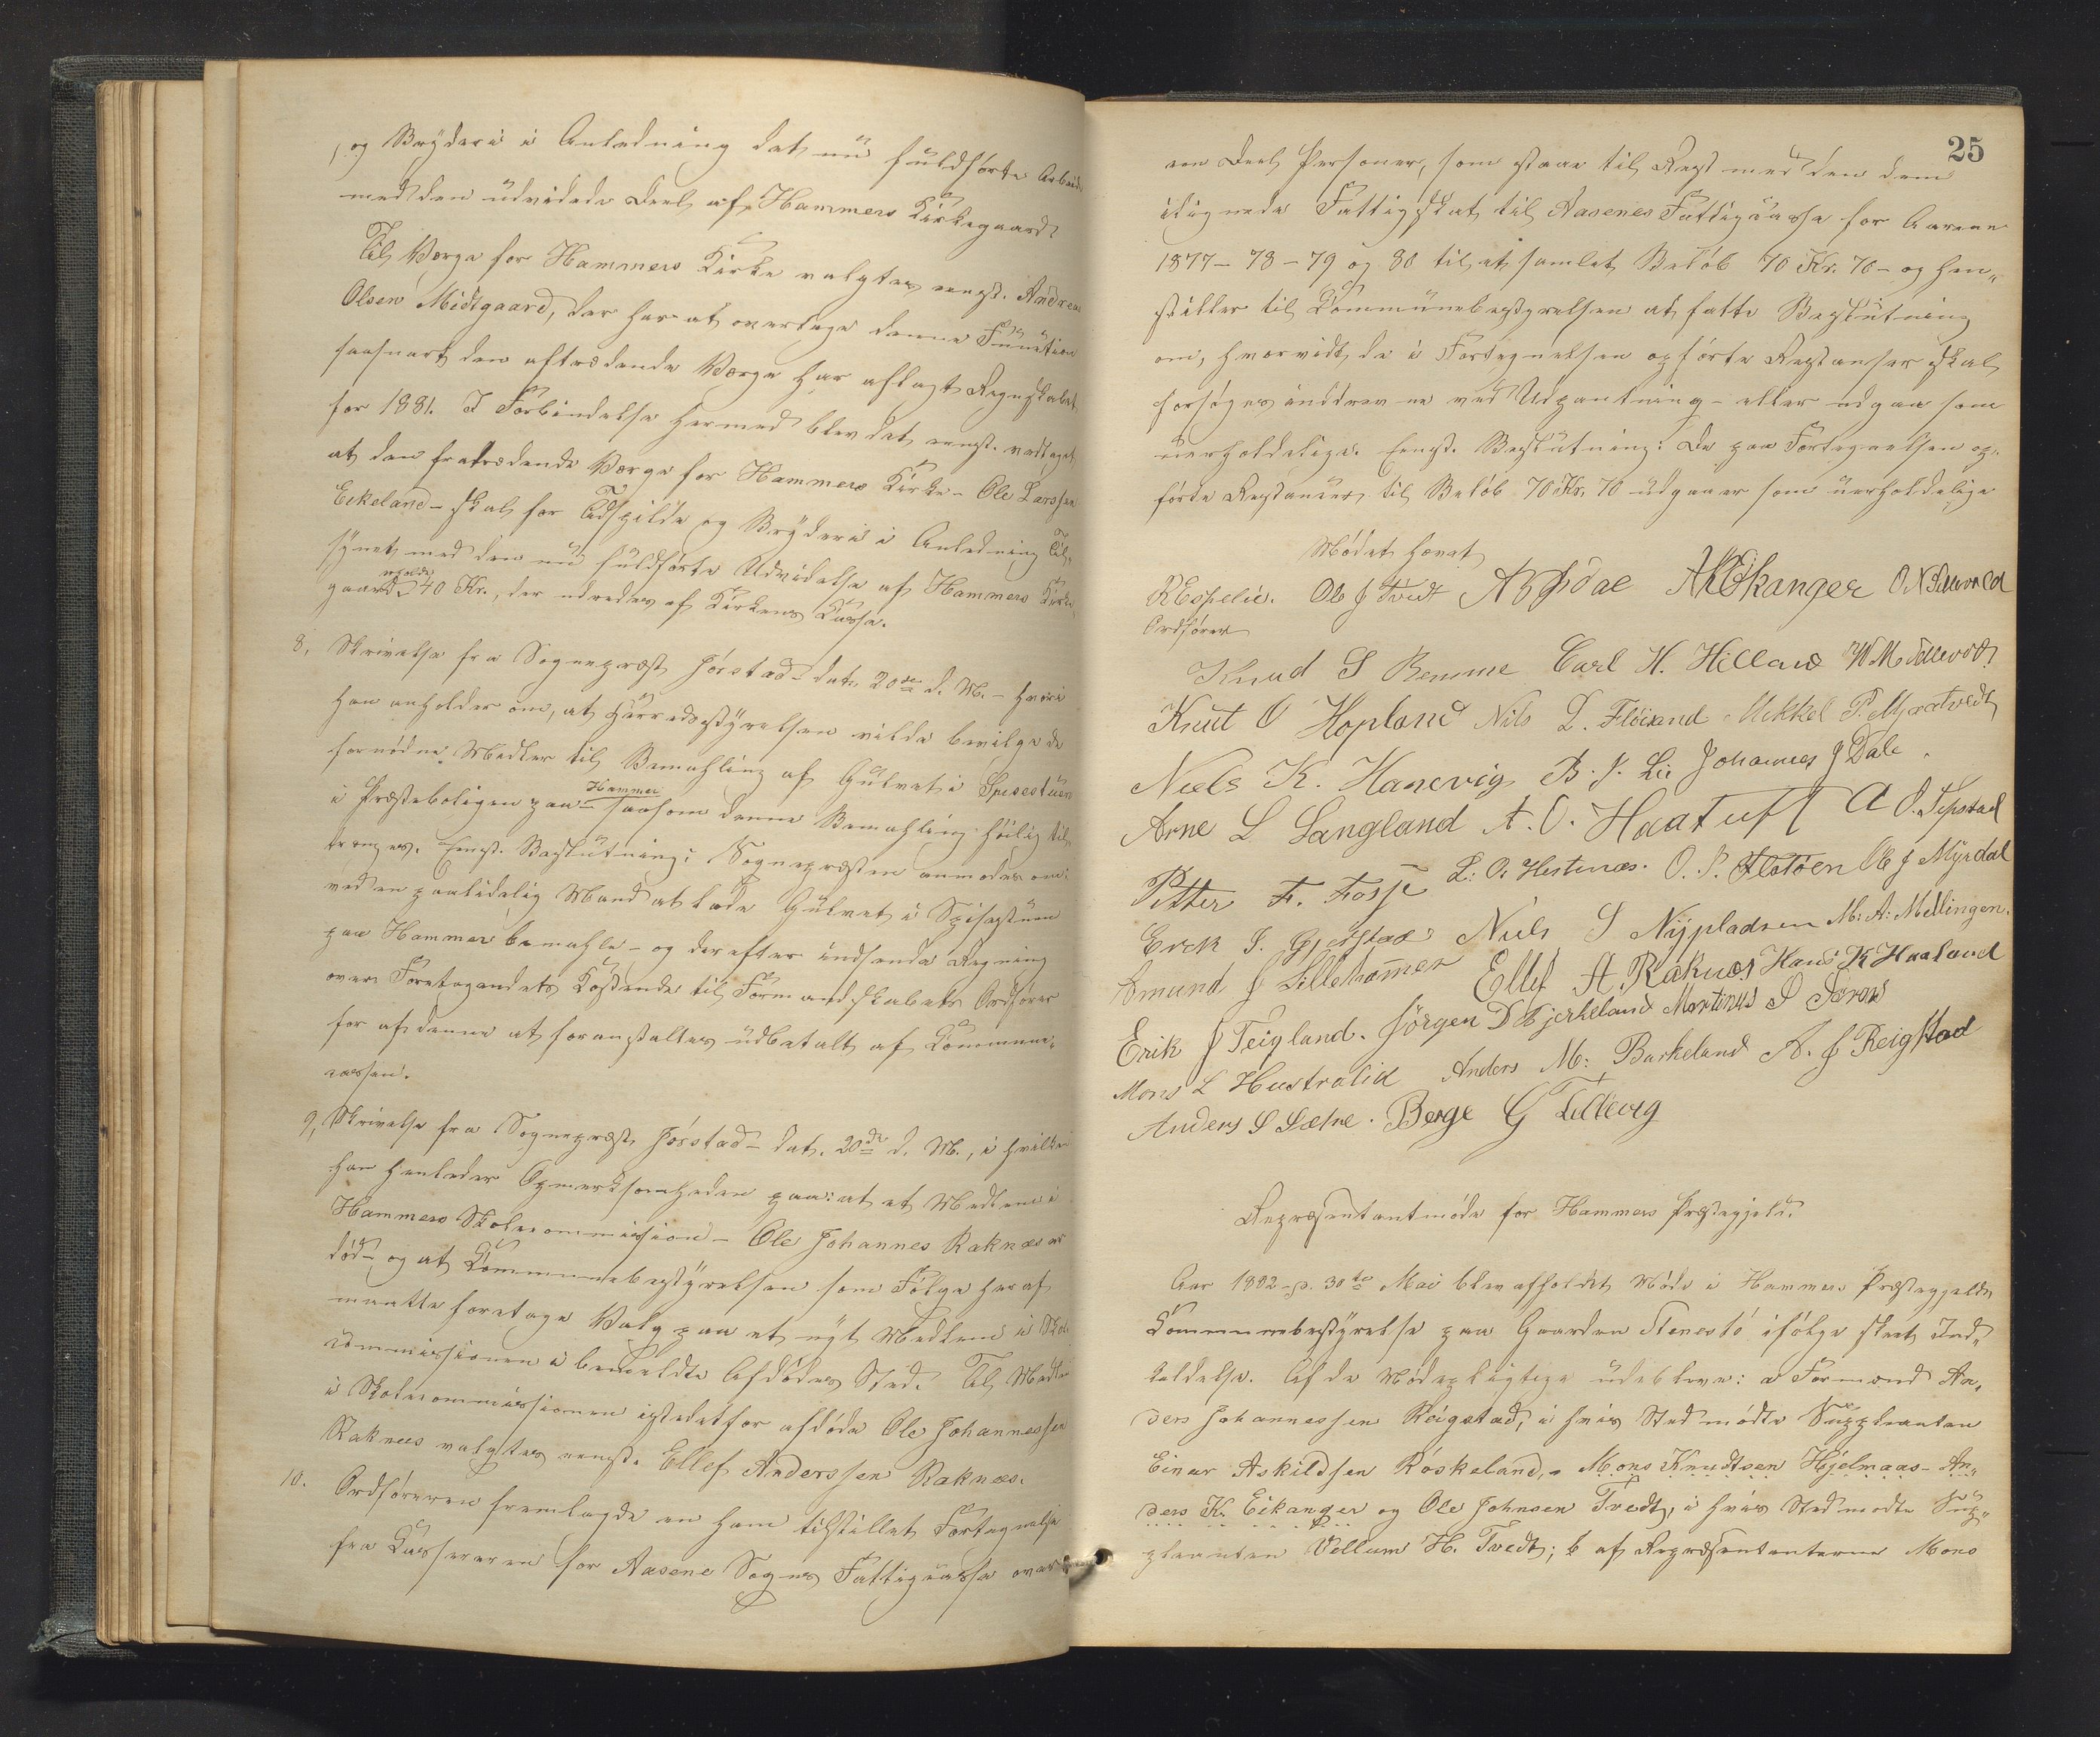 og Bryderi i Anledning det nu fuldførte Arbeide
med den udvidede Deel af Hammers Kirkegaard.
Til Værge for Hammers Kirke valgtes eenst. Andreas
Olsen Midtgaard, der har at overtage denne Function
saasnart den aftrædende Værge har aflagt Regnskabet
for 1881. I Forbindelse hermed blev det eenst. vedtaget
at den fratrædende Værge for Hammers Kirke - Ole Larssen
Eikeland - skal for Tidspilde og Bryderi i Anledning Til-
synet med den nu fuldførte Udvidelse af Hammers Kirke-
gaard erholde 40 Kr., der udredes af Kirkens Kasse.
8, Skrivelse fra Sognepræst Jørstad - dat. 20de d. M. - hvori
han anholder om, at Herredsstyrelsen vilde bevilge de
fornødne Midler til Bemahling af Gulvet i Spisestuen
i Præsteboligen paa Hammer saasom denne Bemahling høilig til-
trænges. Eenst. Beslutning: Sognepræsten anmodes om:
ved en paalidelig Mand at lade Gulvet i Spisestuen
paa Hammer bemahle - og derefter indsende Regning
over Foretagendets Kostende til Formandskabets Ordfører
for af denne at foranstaltes udbetalt af Kommune-
cassen.
9, Skrivelse fra Sognepræst Jørstad - dat. 20de d. M., i hvilken
han henleder Opmerksomheden paa: at et Medlem i
Hammers Skolecommission - Ole Johannes Raknes er
død - og at Kommunebestyrelsen som Følge heraf
maatte foretage Valg paa et nyt Medlem i Skole
commissionen i bemeldte Afdødes Sted. Til Medlem
i Skolecommissionen istedetfor afdøde Ole Johannessen
Raknes valgtes eenst. Ellef Anderssen Raknes.
10. Ordføreren fremlagde en ham tilstillet Fortegnelse
fra Kassereren for Aasene Sogns Fattigcasse over
25
een Deel Personer, som staar til Rest med den dem
ilignede Fattigskat til Aasenes Fattigcasse for Aarene
1877 - 78 - 79 og 80 til et samlet Beløb 70 Kr. 70 - og hen-
stiller til Kommunebestyrelsen at fatte Beslutning
om, hvorvidt de i Fortegnelsen opførte Restanser skal
forsøges inddrevne ved Udpantning - eller udgaa som
uerholdelige. Eenst. Beslutning: De paa Fortegnelsen op-
førte Restancer til Beløb 70 Kr. 70 udgaaer som uerholdelige
Mødet hævet
R Espelie. Ole J Tvedt A K Eikanger
Ordfører
Knud S Remme Carl H. Hilland
Knut O Hopland Nils L. Fløisand Mikkel P. Mjaatvedt
Niels K. Hanevig B. J. Lie Johannes J Dale
Arne L Langland A. O. Haatuft
Petter F. Fosse L. O. Hestenæs. O. P. Flatøen Ole J Myrdal
Erik J. Gjerstad Niels S Nypladsen M. A. Mellingen.
Amund J Lillehammer Ellef A. Raknes Hans K Haaland
Erik J Teigland. Jørgen D Bjerkeland Martinus
Mons L Anders M: Burkeland A. J Reigstad
Anders S Sætre. Berge G Tellevig
Repræsentantmøde for Hammers Præstegjeld.
Aar 1882 - d. 30te Mai blev afholdt Møde i Hammers Præstegjelds
Kommunebestyrelse paa Gaarden Stenestø ifølge skeet Ind-
kaldelse. Af de Mødepligtige udebleve: a Formænd An-
ders Johannessen Reigstad, i hvis Sted mødte Suppleanten
Einar Askildsen Røskeland, - Mons Knudtsen Hjelmaas - An-
ders K. Eikanger og Ole Johnsen Tvedt, i hvis Sted mødte Sup-
pleanten Villum H. Tvedt; b af Repræsentanterne Mons